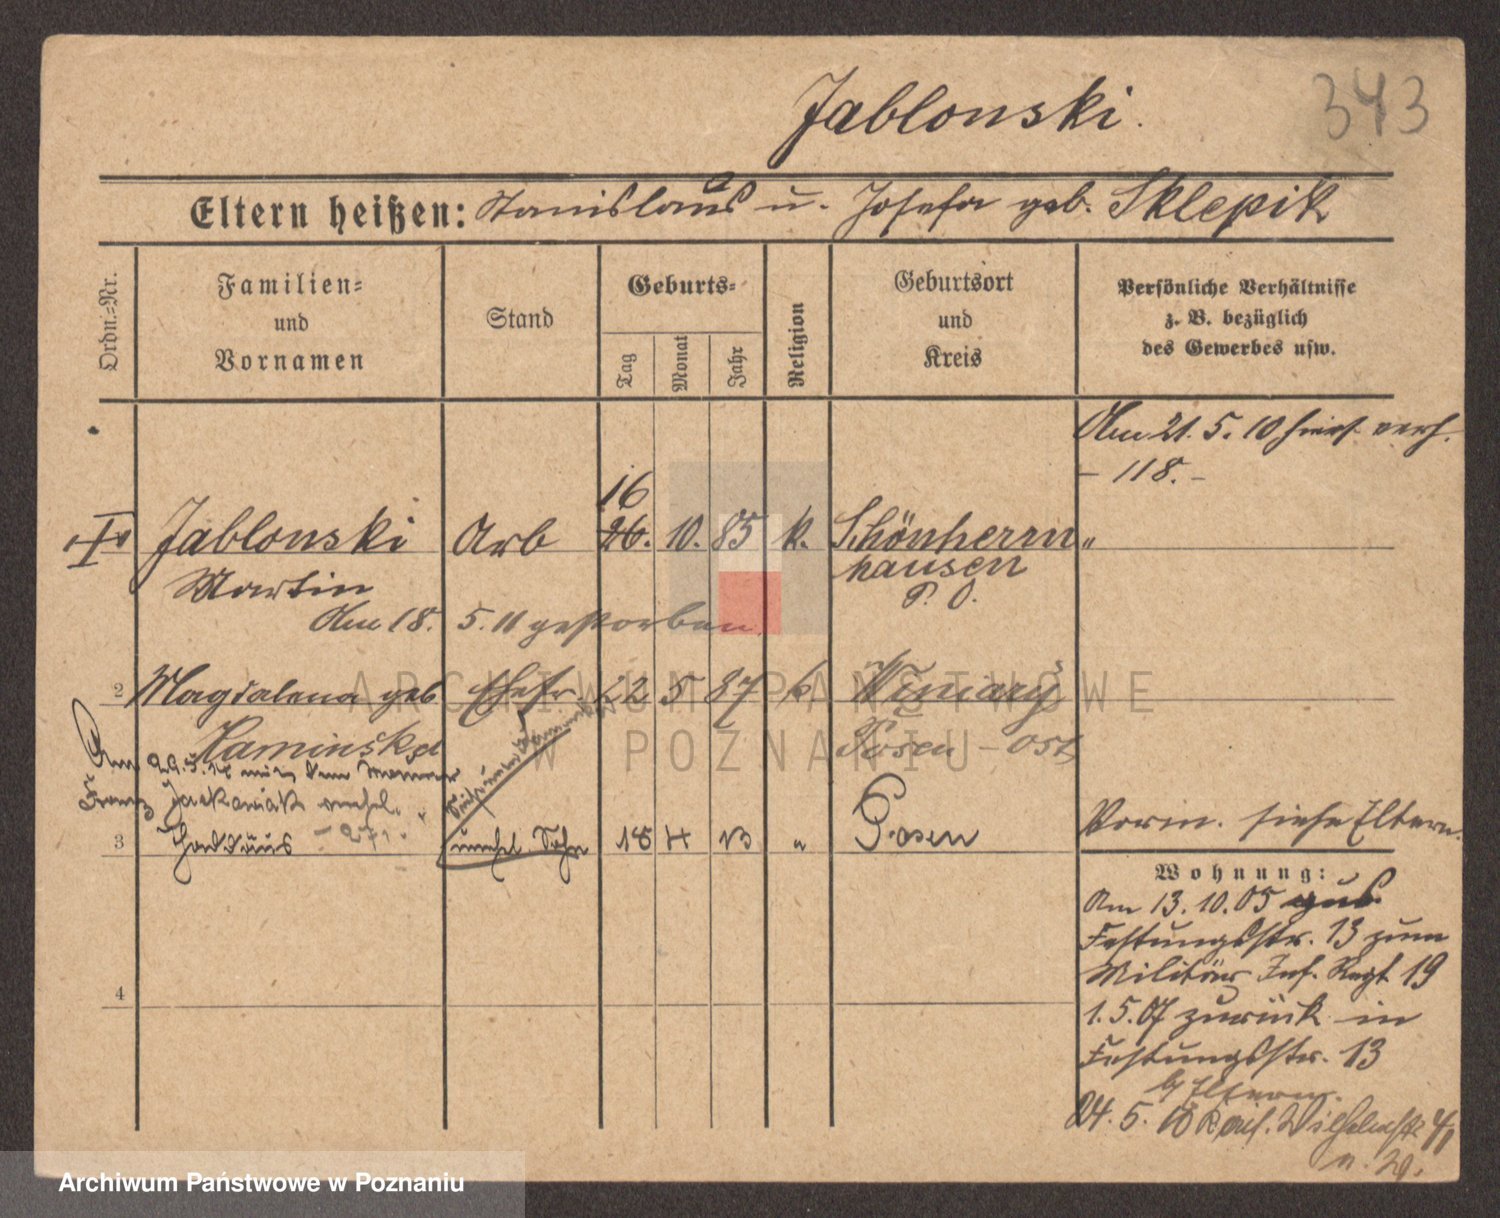 343
Jablonski.
Eltern heißen: Stanislaus u. Josefa geb. Sklepik
Ordn.=Nr.
Familien=
und
Vornamen
Stand
Geburts=
Tag
Monat
Jahr
Religion
Geburtsort
und
Kreis
Persönliche Verhältnisse
z. B. bezüglich
des Gewerbes usw.
Am 21. 5. 10 hier verh.
- 118. -
16
Jablonski Arb 26. 10. 85 k. Schönherrn "
Martin hausen
P. O.
Am 18. 5. 11 gestorben.
2 Magdalena geb Ehefr. 22 5 87 k Winiary
Kaminska Posen - Ost
Am mit dem
Franz verehel.
3 Thaddäus - 271. unehel. Sohn 18 4 13 " Posen
Vorm. siehe Eltern.
Wohnung:
Am 13. 10. 05 aus
Festungsstr. 13 zum
Militär Inf. Regt 19
1. 5. 07 zurück in
Festungsstr. 13
b/ Eltern.
24. 5. 10 Kais. Wilhelmstr 41
n. 29.
4
ARCHIWUM PAŃSTWOWE
W POZNANIU
Archiwum Państwowe w Poznaniu